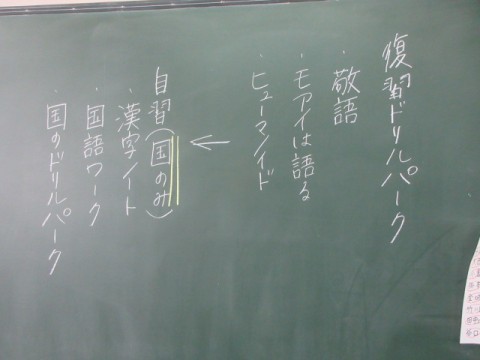 復習ドリルパーク
・敬語
・モアイは語る
・ヒューマノイド
←
自習(国のみ)
・漢字ノート
・国語ワーク
・国のドリルパーク